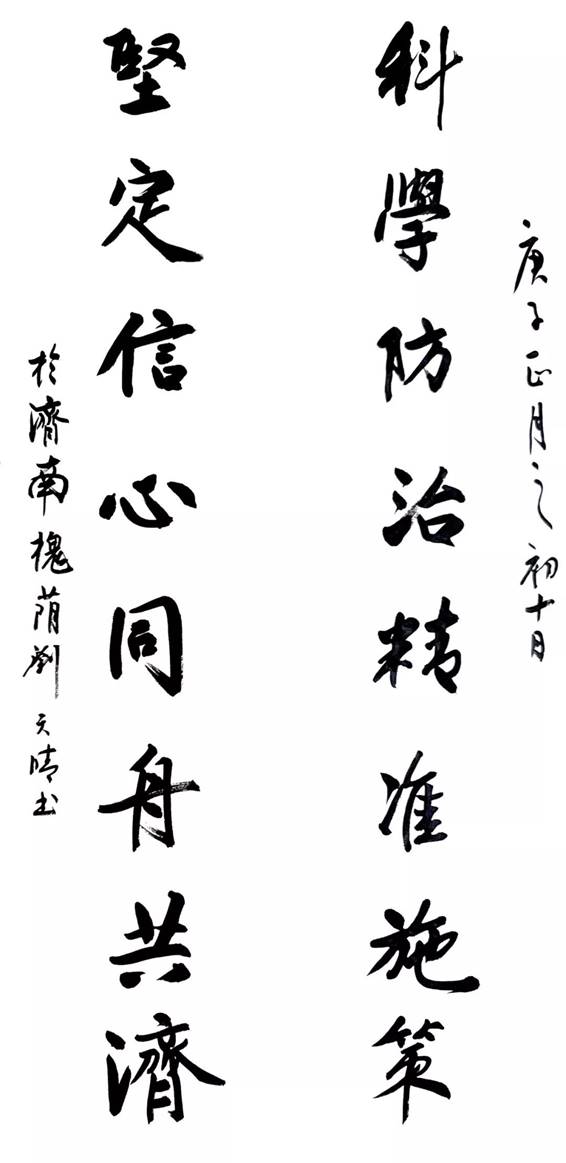 庚子正月之初十日
科學防治精准施策
堅定信心同舟共濟
於濟南槐荫劉天晴书